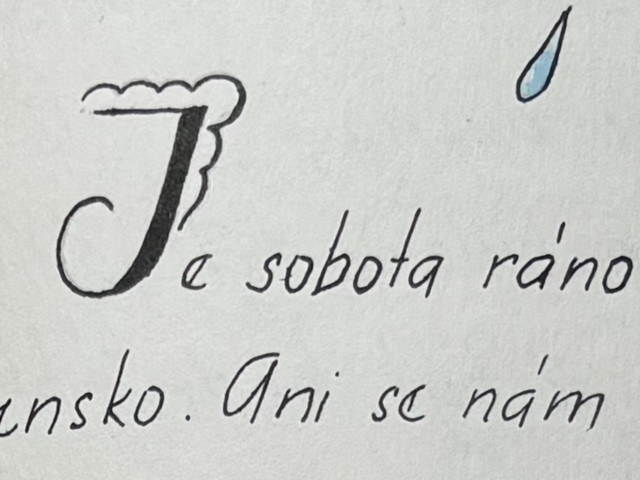 Je sobota ráno
nsko. Ani se nám